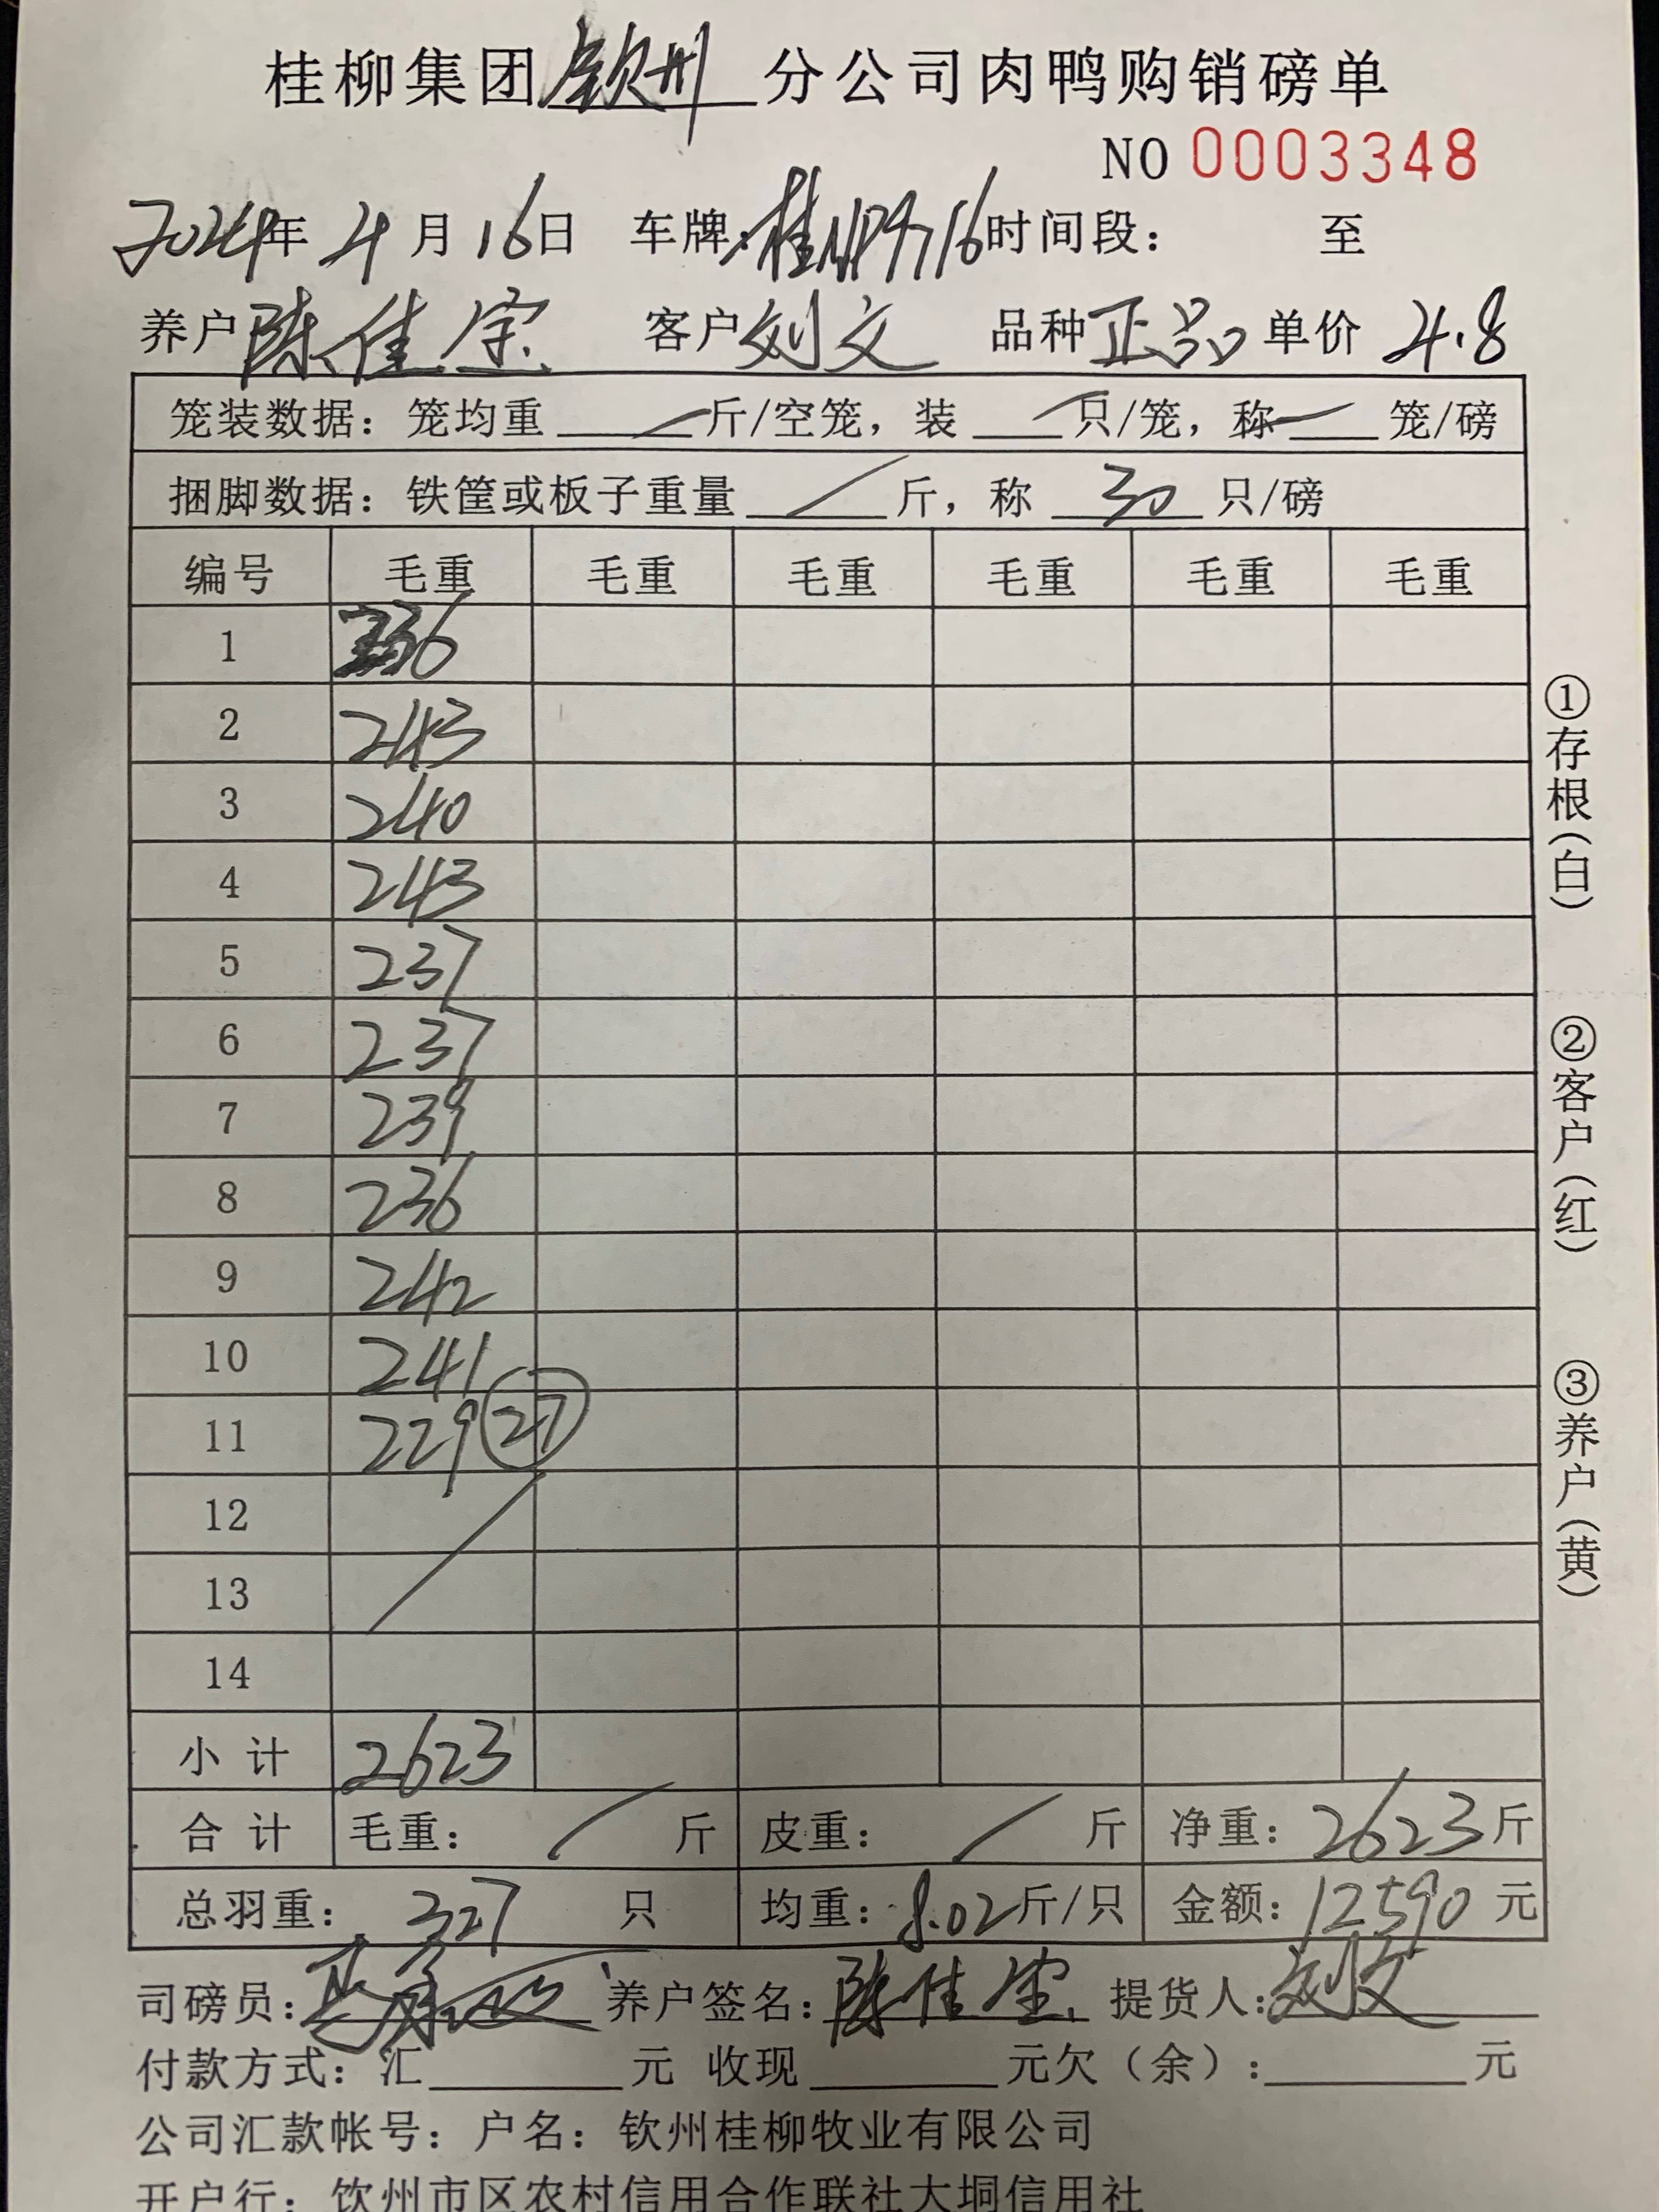 桂柳集团钦州分公司肉鸭购销磅单
NO 0003348
2024年 4月 16日 车牌:桂NP9716 时间段: 至
养户 陈佳宝 客户 刘文 品种 正品 单价 4.8
笼装数据:笼均重 / 斤/空笼,装 / 只/笼,称 / 笼/磅
捆脚数据:铁筐或板子重量 / 斤,称 30 只/磅
编号 毛重 毛重 毛重 毛重 毛重 毛重
1 236
2 243
3 240
4 243
5 237
6 237
7 239
8 236
9 242
10 241
11 229 27
12
13
14
小计 2623
合计 毛重: / 斤 皮重: / 斤 净重: 2623斤
总羽重: 327 只 均重: 8.02斤/只 金额: 12590 元
司磅员: 养户签名:陈佳宝 提货人:刘文
付款方式:汇 元 收现 元欠(余): 元
公司汇款帐号:户名:钦州桂柳牧业有限公司
开户行:钦州市区农村信用合作联社大垌信用社
①存根(白)
②客户(红)
③养户(黄)